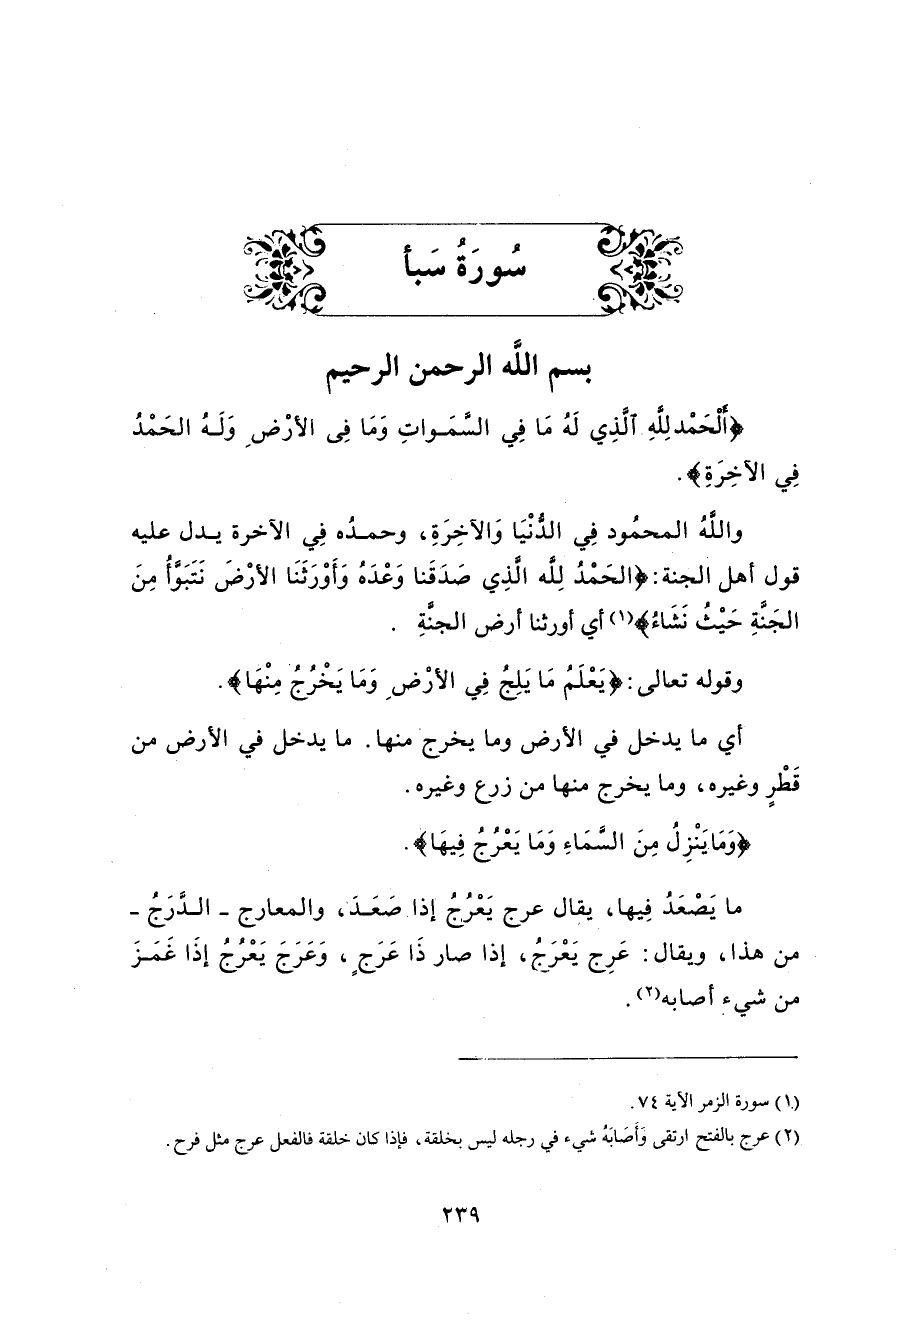 سُورَةُ سَبأ
بسم اللَّه الرحمن الرحيم
﴿أَلْحَمْدلِلَّهِ ٱلَّذِي لَهُ مَا فِي السَّمَـواتِ وَمَا فِى الأرْضِ وَلَـهُ الحَمْدُ
فِي الآخِرَةِ﴾.
واللَّهُ المحمُود فِي الدُّنْيَا وَالآخِرَةِ، وحمـدُه فِي الآخرة يـدل عليه
قول أهل الجنة: ﴿الحَمْدُ لِلَّه الَّذِي صَدَقَنا وَعْدَهُ وَأَوْرَثَنَا الأرْضَ نَتَبَوَّأُ مِنَ
الجَنَّةِ حَيْثُ نَشَاءُ﴾(١) أي أورثنا أرض الجنَّةِ .
وقوله تعالى: ﴿يَعْلَمُ مَا يَلِجُ فِي الأرْضِ وَمَا يَخْرُجُ مِنْهَا﴾.
أي ما يدخل في الأرض وما يخرج منها. ما يدخل في الأرض من
قَطْرٍ وغيره، وما يخرج منها من زرع وغيره.
﴿وَمَا يَنْزِلُ مِنَ السَّمَاءِ وَمَا يَعْرُجُ فِيهَا﴾.
ما يَصْعَدُ فِيها، يقال عرج يَعْرُجُ إذا صَعَـدَ، والمعارج ـ الـدَّرَجُ ـ
من هذا، ويقال: عَرِج يَعْرَجُ، إذا صار ذَا عَرَجٍ، وَعَرَجَ يَعْرُجُ إذَا غَمَـزَ
من شيء أصابه(٢).
(١) سورة الزمر الآية ٧٤.
(٢) عرج بالفتح ارتقى وَأَصَابَهُ شيء في رجله ليس بخلقة، فإذا كان خلقة فالفعل عرج مثل فرح.
٢٣٩